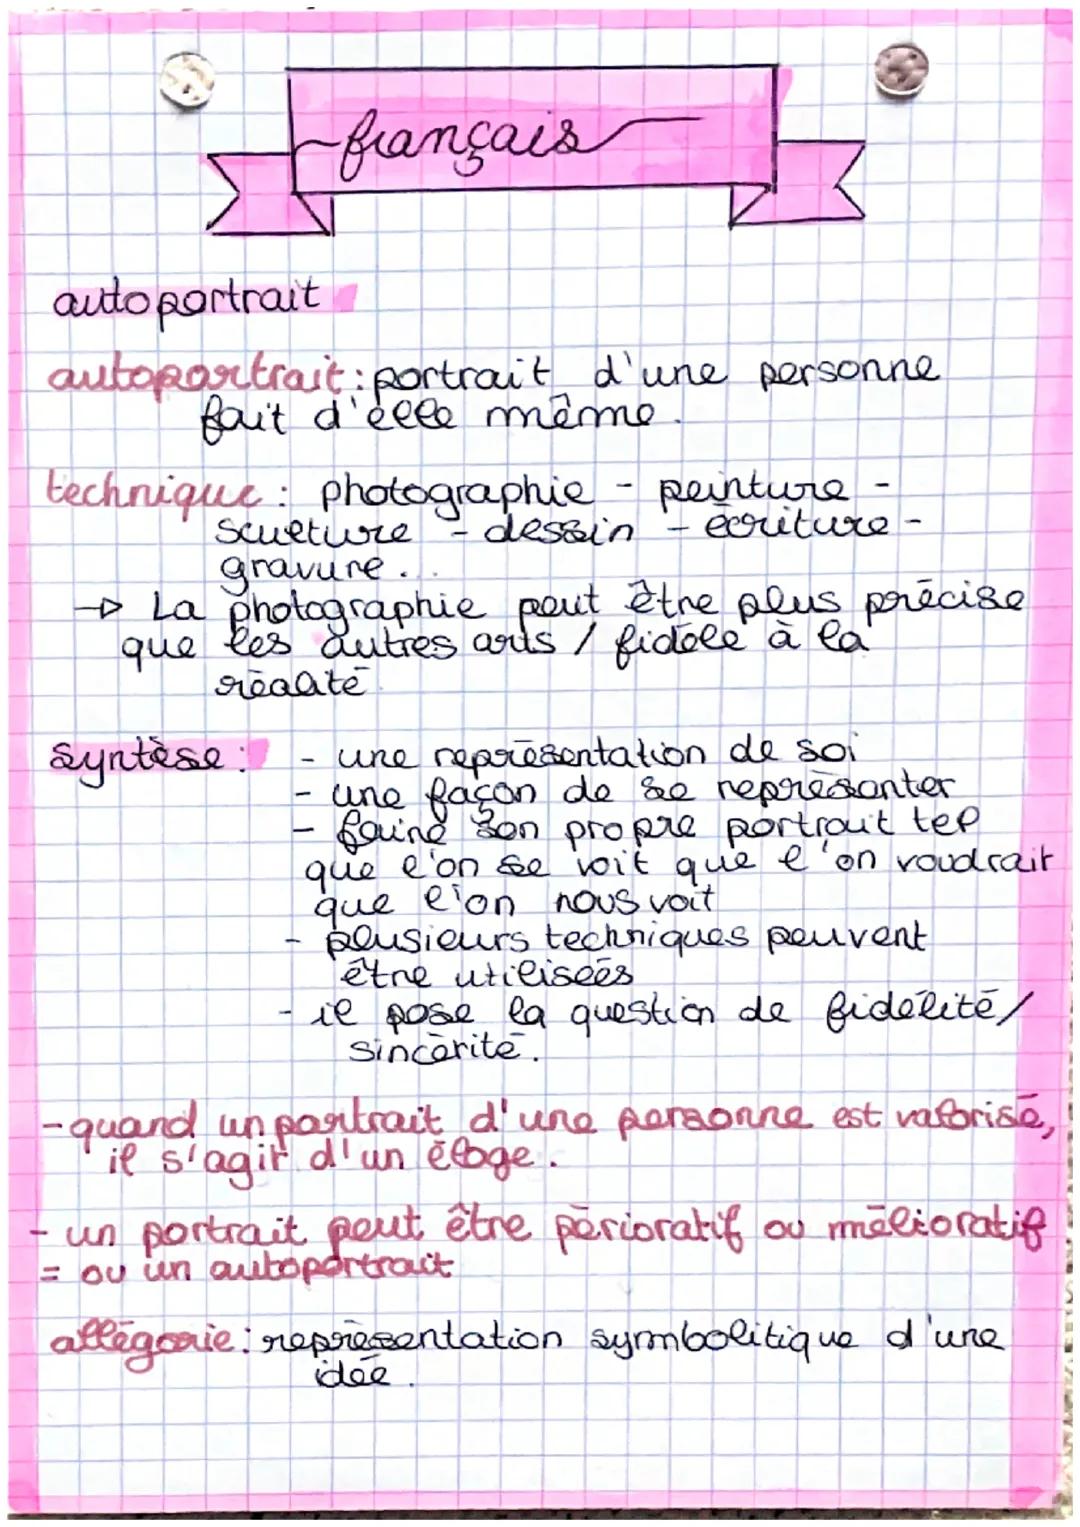 français
autoportrait
autoportrait : portrait d'une personne
fait d'elle même.
technique : photographie - peinture -
sculture - dessin - écriture -
gravure...
→ La photographie peut être plus précise
que les autres arts / fidèle à la
réalité
syntèse : - une représentation de soi
- une façon de se représanter
- faire son propre portrait tel
que l'on se voit que l'on voudrait
que l'on nous voit
- plusieurs techniques peuvent
être utilisées
- il pose la question de fidélité/
sincèrité.
- quand un portrait d'une personne est valorisé,
il s'agit d'un éloge.
- un portrait peut être périoratif ou mélioratif
= ou un autoportrait
allégorie : représentation symbolitique d'une
idée.